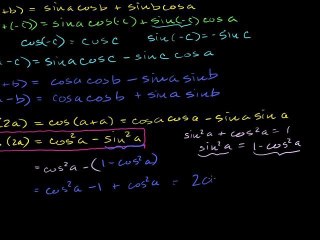 +b) = sina cosb + sinb cosa
+(-c)) = sina cos(-c) + sin(-c) cosa
cos(-c) = cosc sin(-c) = -sinc
-c) = sina cosc - sinc cosa
+b) = cosa cosb - sina sinb
a-b) = cosa cosb + sina sinb
(2a) = cos(a+a) = cosa cosa - sina sina
(2a) = cos²a - sin²a
sin²a + cos²a = 1
sin²a = 1-cos²a
= cos²a - (1-cos²a)
= cos²a - 1 + cos²a = 2c